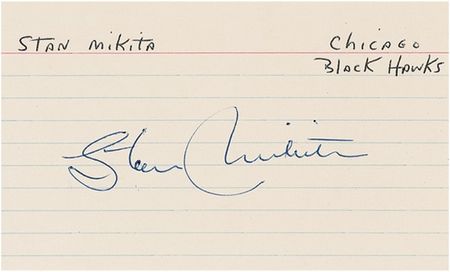 STAN MIKITA
CHICAGO
BLACK HAWKS
Stan Mikita